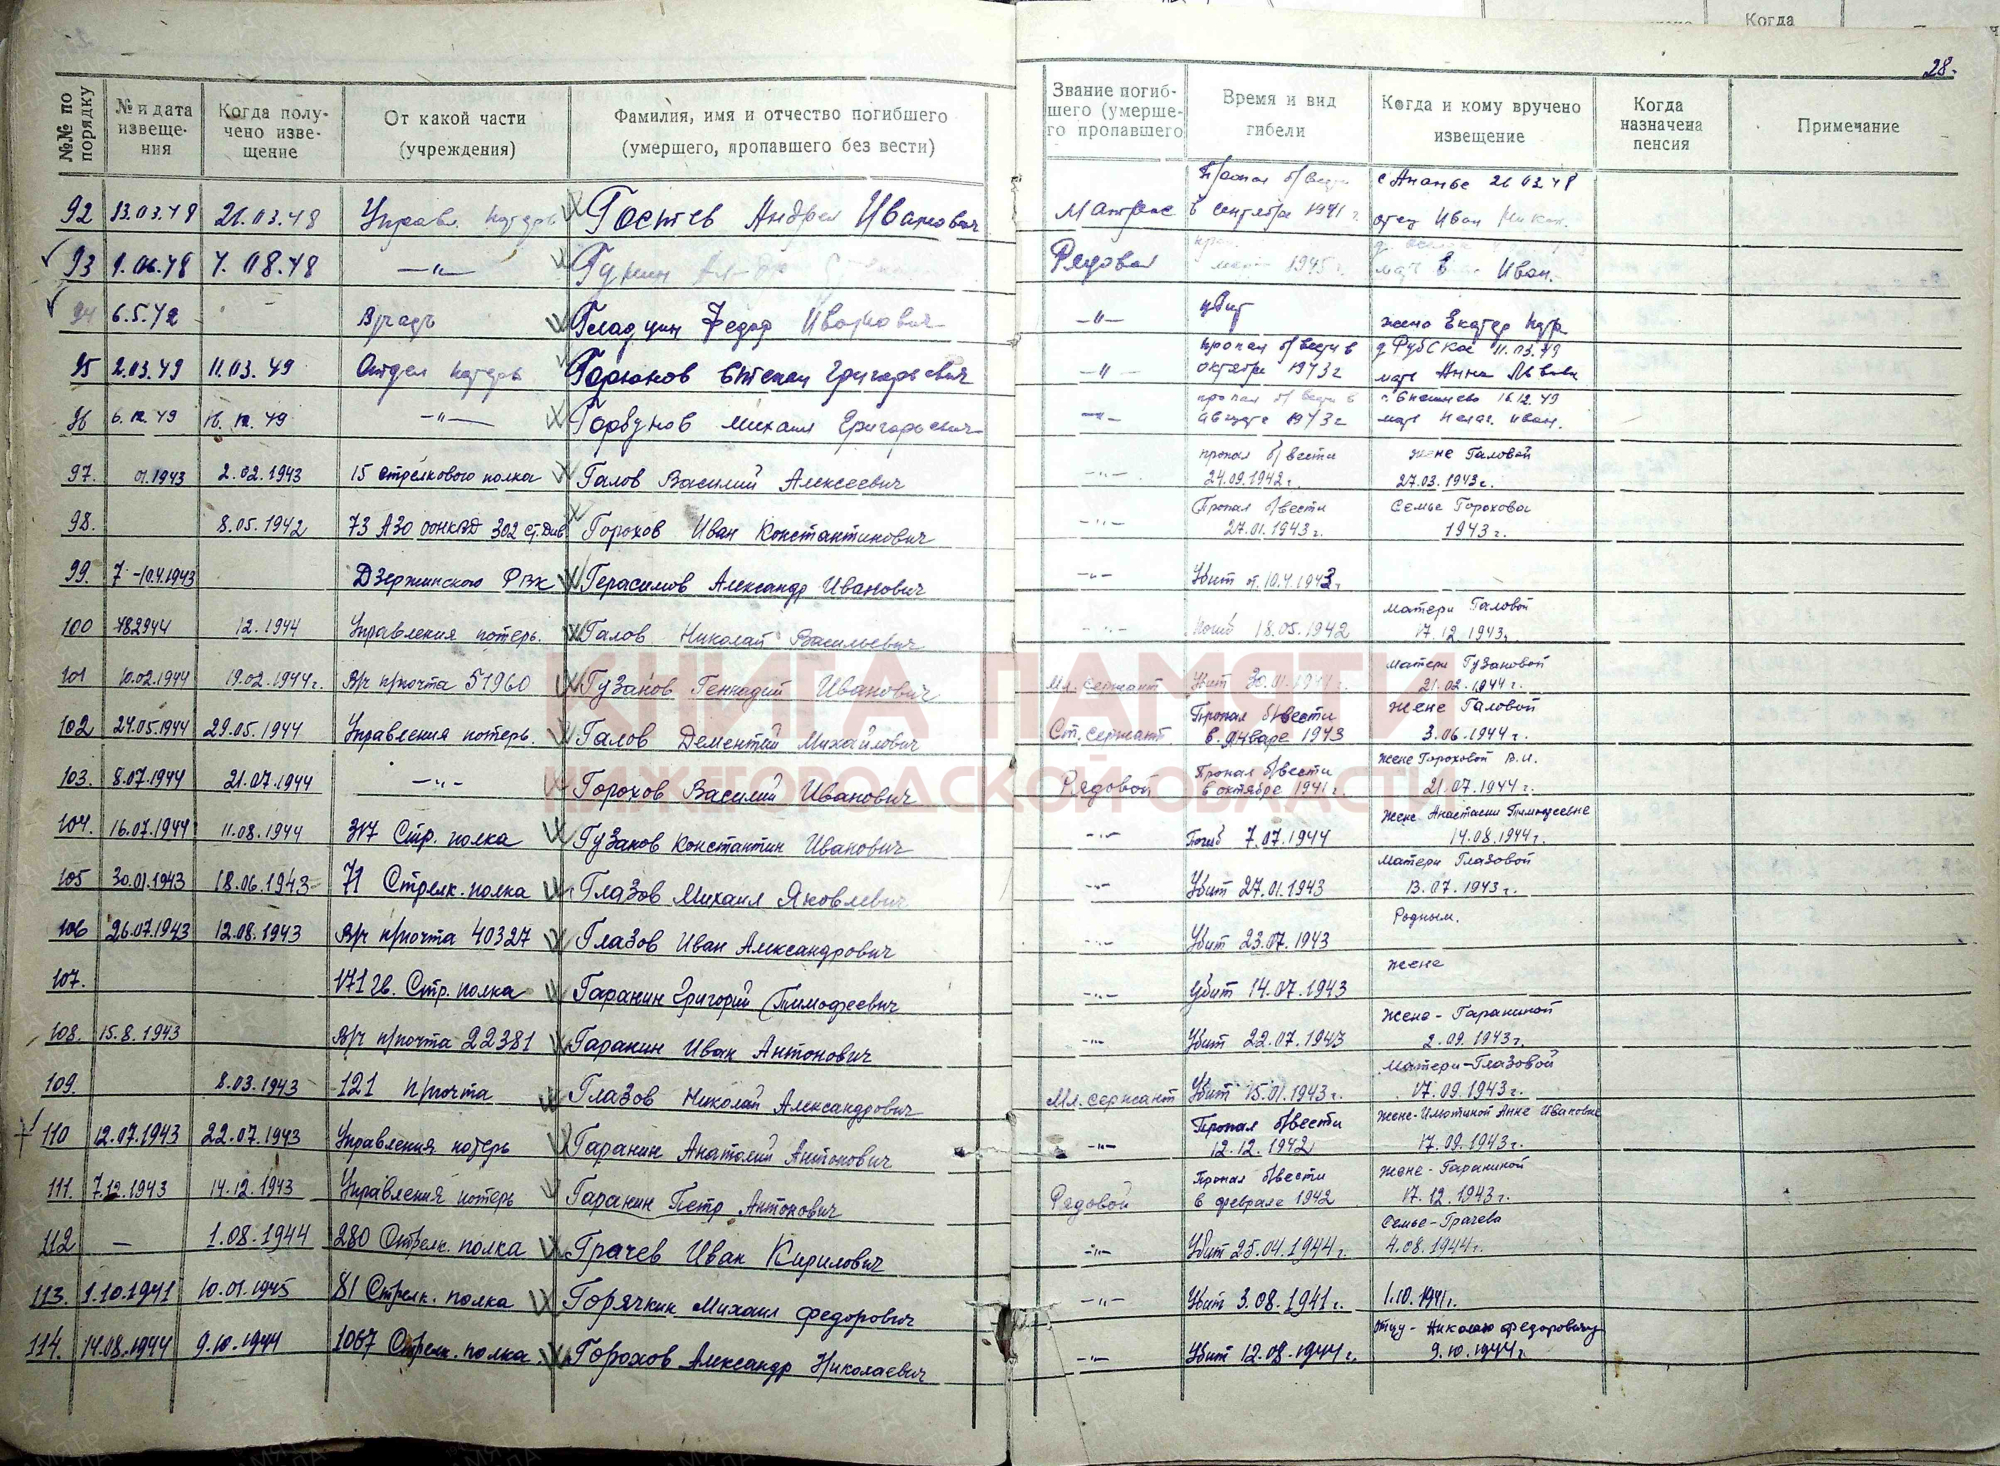 Когда
28.
№№ по порядку
№ и дата извеще-ния
Когда полу-чено изве-щение
От какой части (учреждения)
Фамилия, имя и отчество погибшего (умершего, пропавшего без вести)
Звание погиб-шего (умерше-го пропавшего
Время и вид гибели
Когда и кому вручено извещение
Когда назначена пенсия
Примечание
92 13.03.48 21.03.48 Управл. потерь Гостев Андрей Иванович Матрос Пропал б/вести в сентябре 1941 г. 26 03.48 отец Иван
93 9.06.48 7.08.48 —〃— Рядовой 1945 г. мать Иван.
94 6.5.42 Гладцин Федор Иванович —〃— убит жена Екатер
95 2.03.49 11.03.49 Отдел потерь Горюнов Степан Григорьевич —〃— пропал б/вести в октябре 1943 г 11.03.49 мать Анна Львовна
96 6.12.49 16.12.49 —〃— Горбунов Михаил Григорьевич —〃— пропал б/вести в августе 1943 г 16.12.49 мать Пелаг. Иван.
97. 01.1943 2.02.1943 15 стрелкового полка Галов Василий Алексеевич —〃— пропал б/вести 24.09.1942 г. жене Галовой 27.03.1943 г.
98. 8.05.1942 73 АЗО 302 ст. Див Горохов Иван Константинович —〃— Пропал б/вести 27.01.1943 г. Семье Горохова 1943 г.
99. 7-10.4.1943 Дзержинского РВК Герасимов Александр Иванович —〃— Убит от. 10.4.1943 г.
100 482944 12.1944 Управления потерь. Галов Николай Васильевич —〃— погиб 18.05.1942 матери Галовой 17.12.1943 г.
101 10.02.1944 19.02.1944 г. В/ч п/почта 51960 Гузанов Геннадий Иванович Мл. сержант Убит 30.01.1944 г. матери Гузановой 21.02.1944 г.
102 24.05.1944 29.05.1944 Управления потерь. Галов Дементий Михайлович Ст. сержант. Пропал б/вести в январе 1943 жене Галовой 3.06.1944 г.
103. 8.07.1944 21.07.1944 —〃— Горохов Василий Иванович Рядовой Пропал б/вести в октябре 1941 г. жене Гороховой В.И. 21.07.1944 г.
104. 16.07.1944 11.08.1944 317 Стр. полка Гузанов Константин Иванович —〃— Погиб 7.07.1944 жене Анастасии Тимофеевне 14.08.1944 г.
105 30.01.1943 18.06.1943 71 Стрелк. полка Глазов Михаил Яковлевич —〃— Убит 27.01.1943 матери Глазовой 13.07.1943 г.
106 26.07.1943 12.08.1943 В/ч п/почта 40327 Глазов Иван Александрович —〃— Убит 23.07.1943 Родным.
107. 171 гв. Стр. полка Гаранин Григорий Тимофеевич —〃— Убит 14.07.1943 жене
108. 15.8.1943 В/ч п/почта 22381 Гаранин Иван Антонович —〃— Убит 22.07.1943 жене-Гараниной 2.09.1943 г.
109. 8.03.1943 -121 п/почта Глазов Николай Александрович Мл. сержант Убит 15.01.1943 г. Матери-Глазовой 17.09.1943 г.
110 12.07.1943 22.07.1943 Управления потерь Гаранин Анатолий Антонович —〃— Пропал б/вести 12.12.1942 жене- Анне Ивановне 17.09.1943 г.
111. 7.12.1943 14.12.1943 Управления потерь Гаранин Петр Антонович Рядовой Пропал б/вести в феврале 1942 жене-Гараниной 17.12.1943 г.
112 — 1.08.1944 280 Стрелк. полка Грачев Иван Кирилович —〃— Убит 25.04.1944 г. Семье-Грачева 4.08.1944 г.
113. 1.10.1941 10.01.1945 81 Стрелк. полка Горячкин Михаил Федорович —〃— Убит 3.08.1941 г. 1.10.1941 г.
114. 14.08.1944 9.10.1944 1067 Стрелк. полка. Горохов Александр Николаевич —〃— Убит 12.08.1944 г. отцу-Николаю Федоровичу 9.10.1944 г
КНИГА ПАМЯТИ
НИЖЕГОРОДСКОЙ ОБЛАСТИ